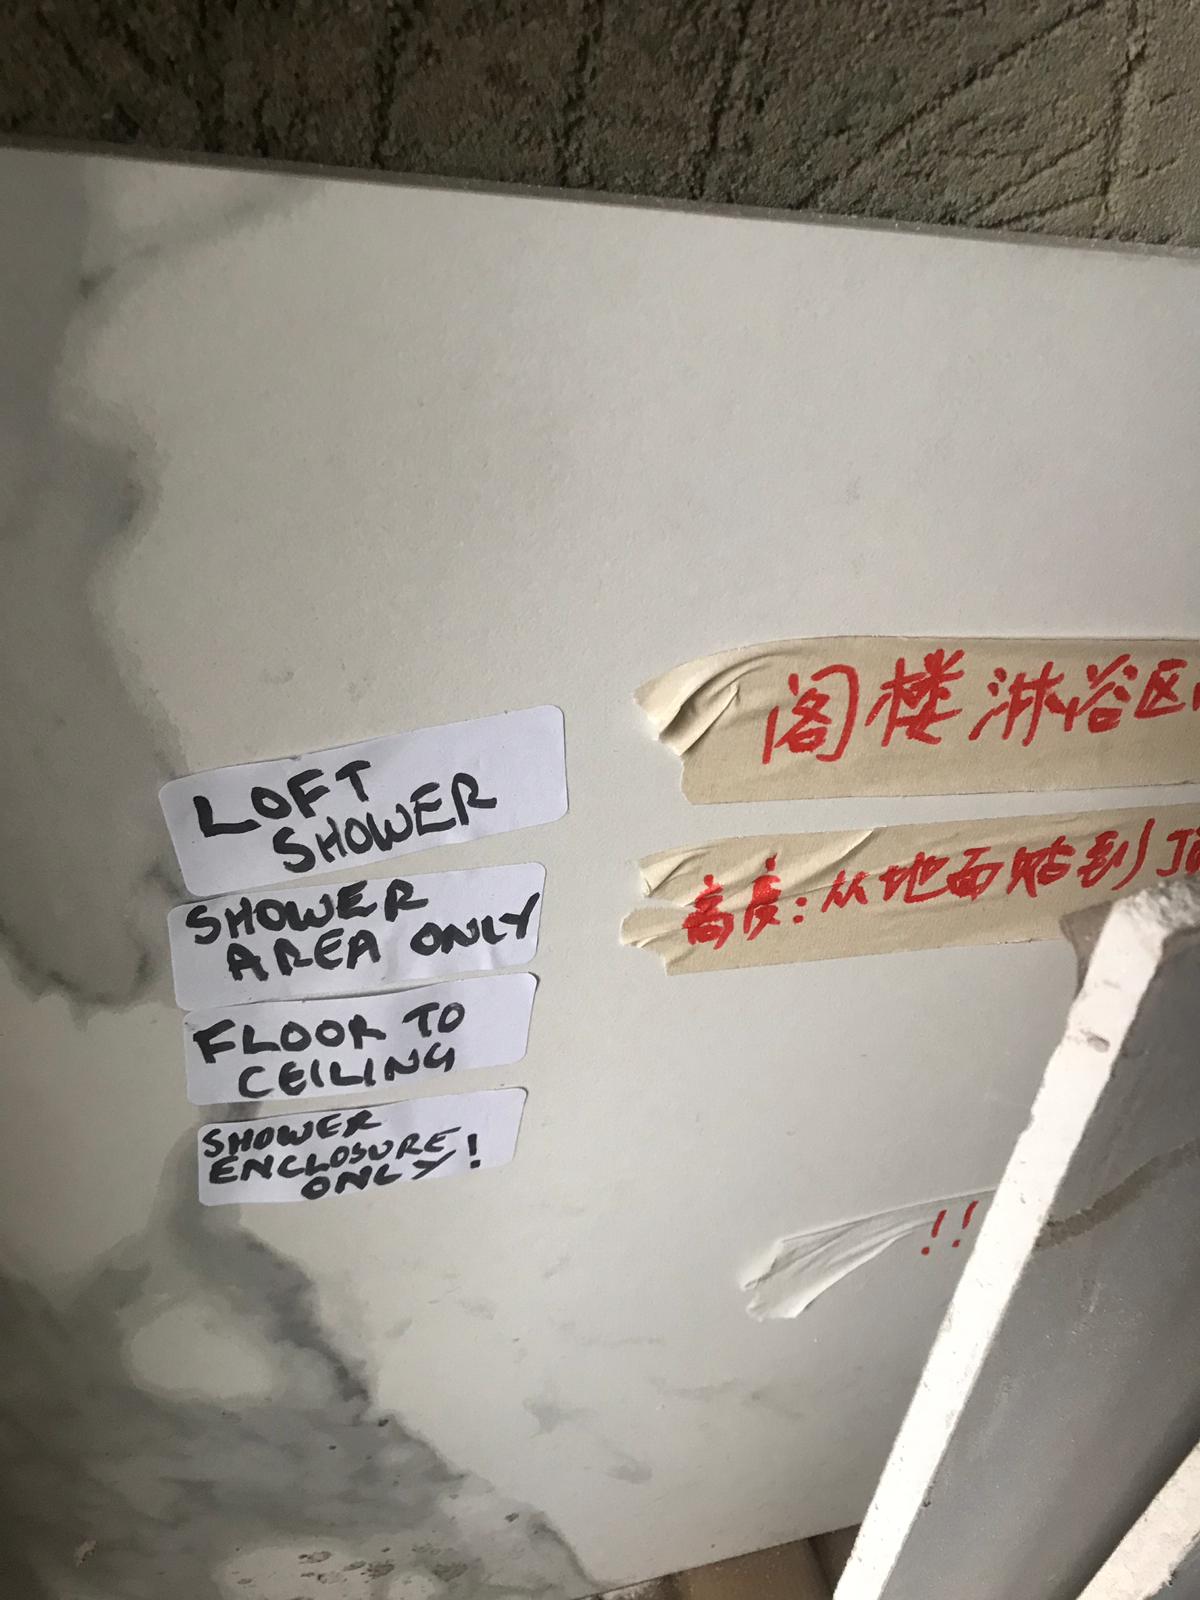 LOFT
SHOWER
SHOWER
AREA ONLY
FLOOR TO
CEILING
SHOWER
ENCLOSURE
ONLY!
阁楼淋浴区
高度:从地面贴到顶
!!